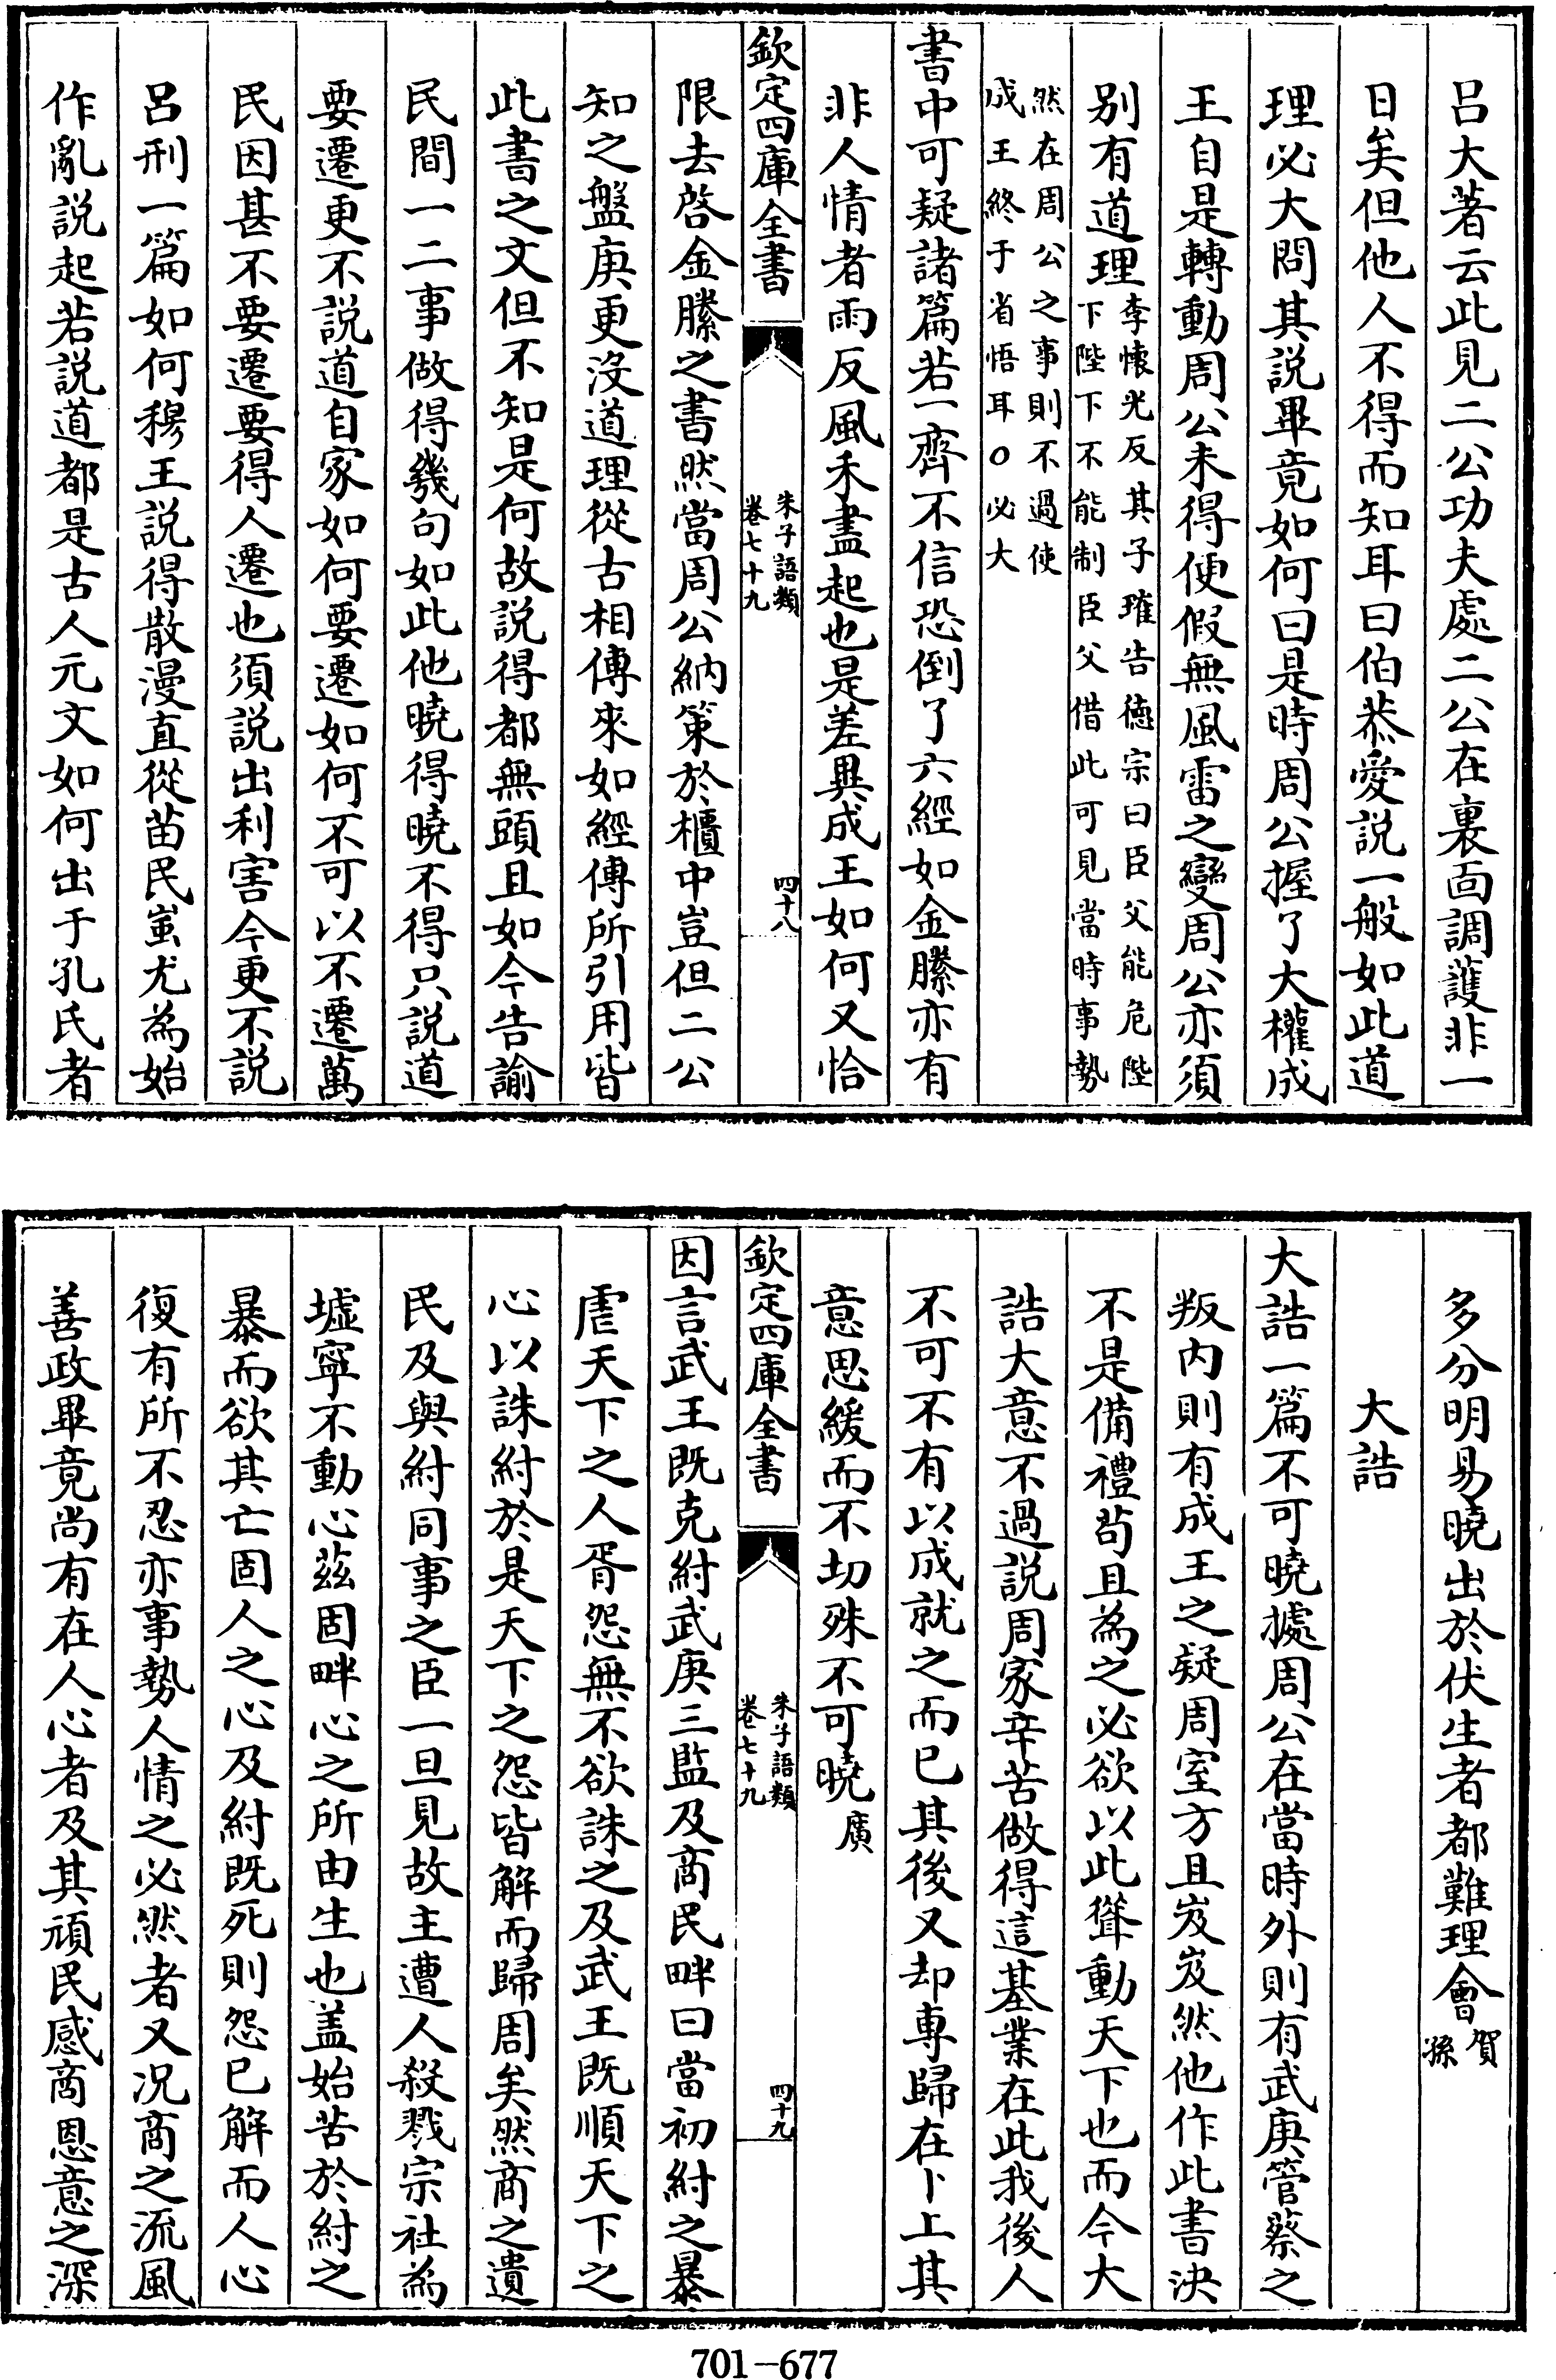 吕大著云此見二公功夫處二公在裏面調護非一
日矣但他人不得而知耳曰伯恭愛説一般如此道
理必大問其説畢竟如何曰是時周公握了大權成
王自是轉動周公未得便假無風雷之變周公亦須
别有道理李懷光反其子璀告德宗曰臣父能危陛
下陛下不能制臣父借此可見當時事勢
然在周公之事則不過使
成王終于省悟耳○必大
書中可疑諸篇若一齊不信恐倒了六經如金縢亦有
非人情者雨反風禾盡起也是差異成王如何又恰
欽定四庫全書
朱子語類
卷七十九
四十八
限去啓金縢之書然當周公納策於櫃中豈但二公
知之盤庚更没道理從古相傳來如經傳所引用皆
此書之文但不知是何故説得都無頭且如今告諭
民間一二事做得幾句如此他曉得曉不得只説道
要遷更不説道自家如何要遷如何不可以不遷萬
民因甚不要遷要得人遷也須説出利害今更不説
吕刑一篇如何穆王説得散漫直從苗民蚩尤為始
作亂説起若説道都是古人元文如何出于孔氏者
多分明易曉出於伏生者都難理會賀
孫
大誥
大誥一篇不可曉據周公在當時外則有武庚管蔡之
叛内則有成王之疑周室方且岌岌然他作此書決
不是備禮苟且為之必欲以此聳動天下也而今大
誥大意不過説周家辛苦做得這基業在此我後人
不可不有以成就之而已其後又却專歸在卜上其
意思緩而不切殊不可曉廣
欽定四庫全書
朱子語類
卷七十九
四十九
因言武王既克紂武庚三監及商民畔曰當初紂之暴
虐天下之人胥怨無不欲誅之及武王既順天下之
心以誅紂於是天下之怨皆解而歸周矣然商之遺
民及與紂同事之臣一旦見故主遭人殺戮宗社為
墟寧不動心兹固畔心之所由生也盖始苦於紂之
暴而欲其亡固人之心及紂既死則怨已解而人心
復有所不忍亦事勢人情之必然者又况商之流風
善政畢竟尚有在人心者及其頑民感商恩意之深
701-677